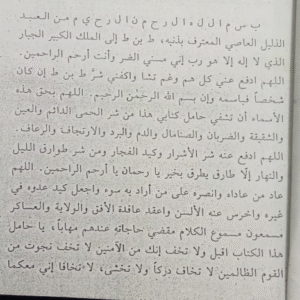 ب س م ا ل ل ه ا ل ر ح م ن ا ل ر ح ي م من العبد
الذليل العاصي المعترف بذنبه، ط بن ط إلى الملك الكبير الجبار
الذي لا إله إلا هو رب إني مسني الضر وأنت أرحم الراحمين.
اللهم ادفع عني كل هم وغم تشا واكفني شر ط بن ط إن كان
شخصاً فباسمه وإن بسم الله الرحمن الرحيم. اللهم بحق هذه
الأسماء أن تشفي حامل كتابي هذا من شر الحمى الدائم والعين
والشقيقة والضربان والصنامال والدم والبرد والارتجاف والرعاف.
اللهم ادفع عنه شر الأشرار وكيد الفجار ومن شر طوارق الليل
والنهار إلّا طارق يطرق بخير يا رحمان يا أرحم الراحمين. اللهم
عاد من عاداه وانصره على من أراد به سوء واجعل كيد عدوه في
غيره واخرس عنه الألسن واعقد عاقدة الأفق والولاية والعساكر
مسموع الكلام مقضي حاجاته عندهم مهاباً، يا حامل
هذا الكتاب اقبل ولا تخف إنك من الآمنين لا تخف نجوت من
القوم الظالمين لا تخاف دركاً ولا تخشى، لا تخافا إني معكما